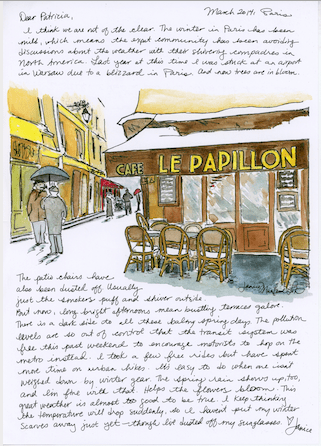 Dear Patricia,
March 2014, Paris
I think we are out of the clear. The winter in Paris has been
mild, which means the expat community has been avoiding
discussions about the weather with their shivering compadres in
North America. Last year at this time I was stuck at an airport
in Warsaw due to a blizzard in Paris. And now trees are in bloom.
CAFÉ LE PAPILLON
The patio chairs have
also been dusted off. Usually
just the smokers puff and shiver outside.
But now, long bright afternoons mean bustling terraces galore.
There is a dark side to all these balmy spring days. The pollution
levels are so out of control that the transit system was
free this past weekend to encourage motorists to hop on the
metro instead. I took a few free rides but have spent
more time on urban hikes. It's easy to do when one isn't
weighed down by winter gear. The spring rain shows up, too,
and I'm fine with that. Helps the flowers bloom. This
great weather is almost too good to be true. I keep thinking
the temperature will drop suddenly, so I haven't put my winter
scarves away just yet - though I did dust off my sunglasses.
Janice